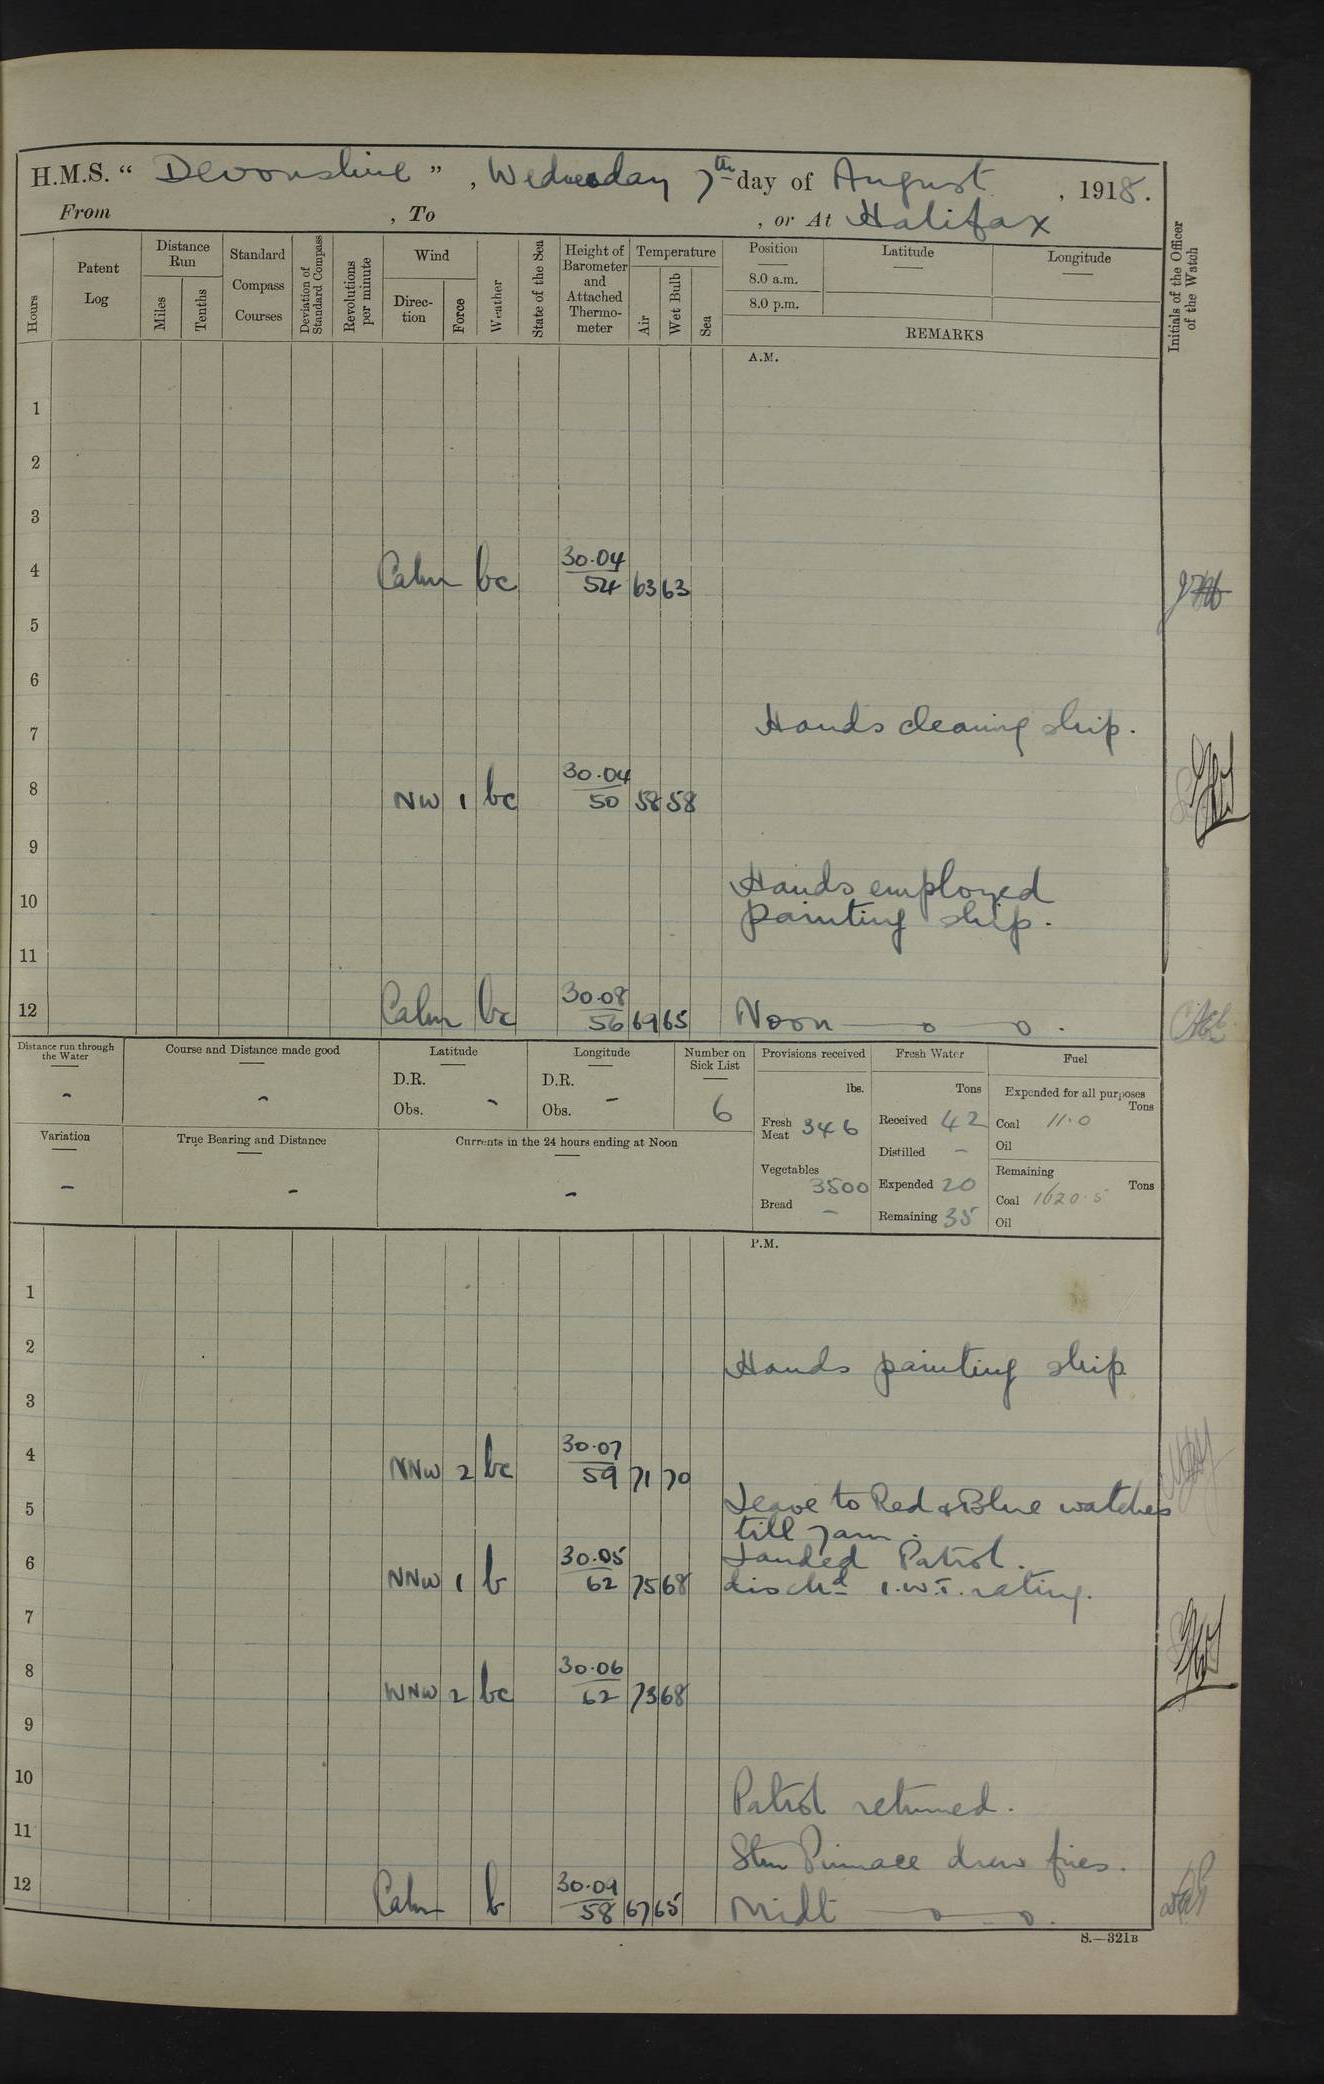 H.M.S. “ Devonshire ” , Wednesday 7th day of August , 1918.
From , To , or At Halifax
Hours
Patent Log
Distance Run
Miles
Tenths
Standard Compass Courses
Deviation of Standard Compass
Revolutions per minute
Wind
Direc-tion
Force
Weather
State of the Sea
Height of Barometer and Attached Thermo-meter
Temperature
Air
Wet Bulb
Sea
Position
8.0 a.m.
8.0 p.m.
Latitude
Longitude
REMARKS
Initials of the Officer of the Watch
A.M.
1
2
3
4 Calm bc 30.04 54 63 63
5
6
7 Hands cleaning ship.
8 NW 1 bc 30.04 50 58 58
9
10 Hands employed
painting ship.
11
12 Calm bc 30.08 56 69 65 Noon
Distance run through the Water -
Course and Distance made good -
Latitude
D.R.
Obs. -
Longitude
D.R.
Obs. -
Number on Sick List
6
Provisions received
lbs.
Fresh Meat 346
Vegetables 3500
Bread -
Fresh Water
Tons
Received 42
Distilled -
Expended 20
Remaining 35
Fuel
Expended for all purposes
Tons
Coal 11.0
Oil
Remaining
Tons
Coal 1620.5
Oil
Variation -
True Bearing and Distance -
Currents in the 24 hours ending at Noon -
P.M.
1
2 Hands painting ship
3
4 NNW 2 bc 30.07 59 71 70
5 Leave to Red & Blue watches
till 7am.
6 NNW 1 b 30.05 62 75 68 Landed Patrol.
dischd 1.W.T. rating.
7
8 WNW 2 bc 30.06 62 73 68
9
10 Patrol returned.
11 Stm Pinnace drew fires.
12 Calm b 30.09 58 67 65 Midt
S.—321B